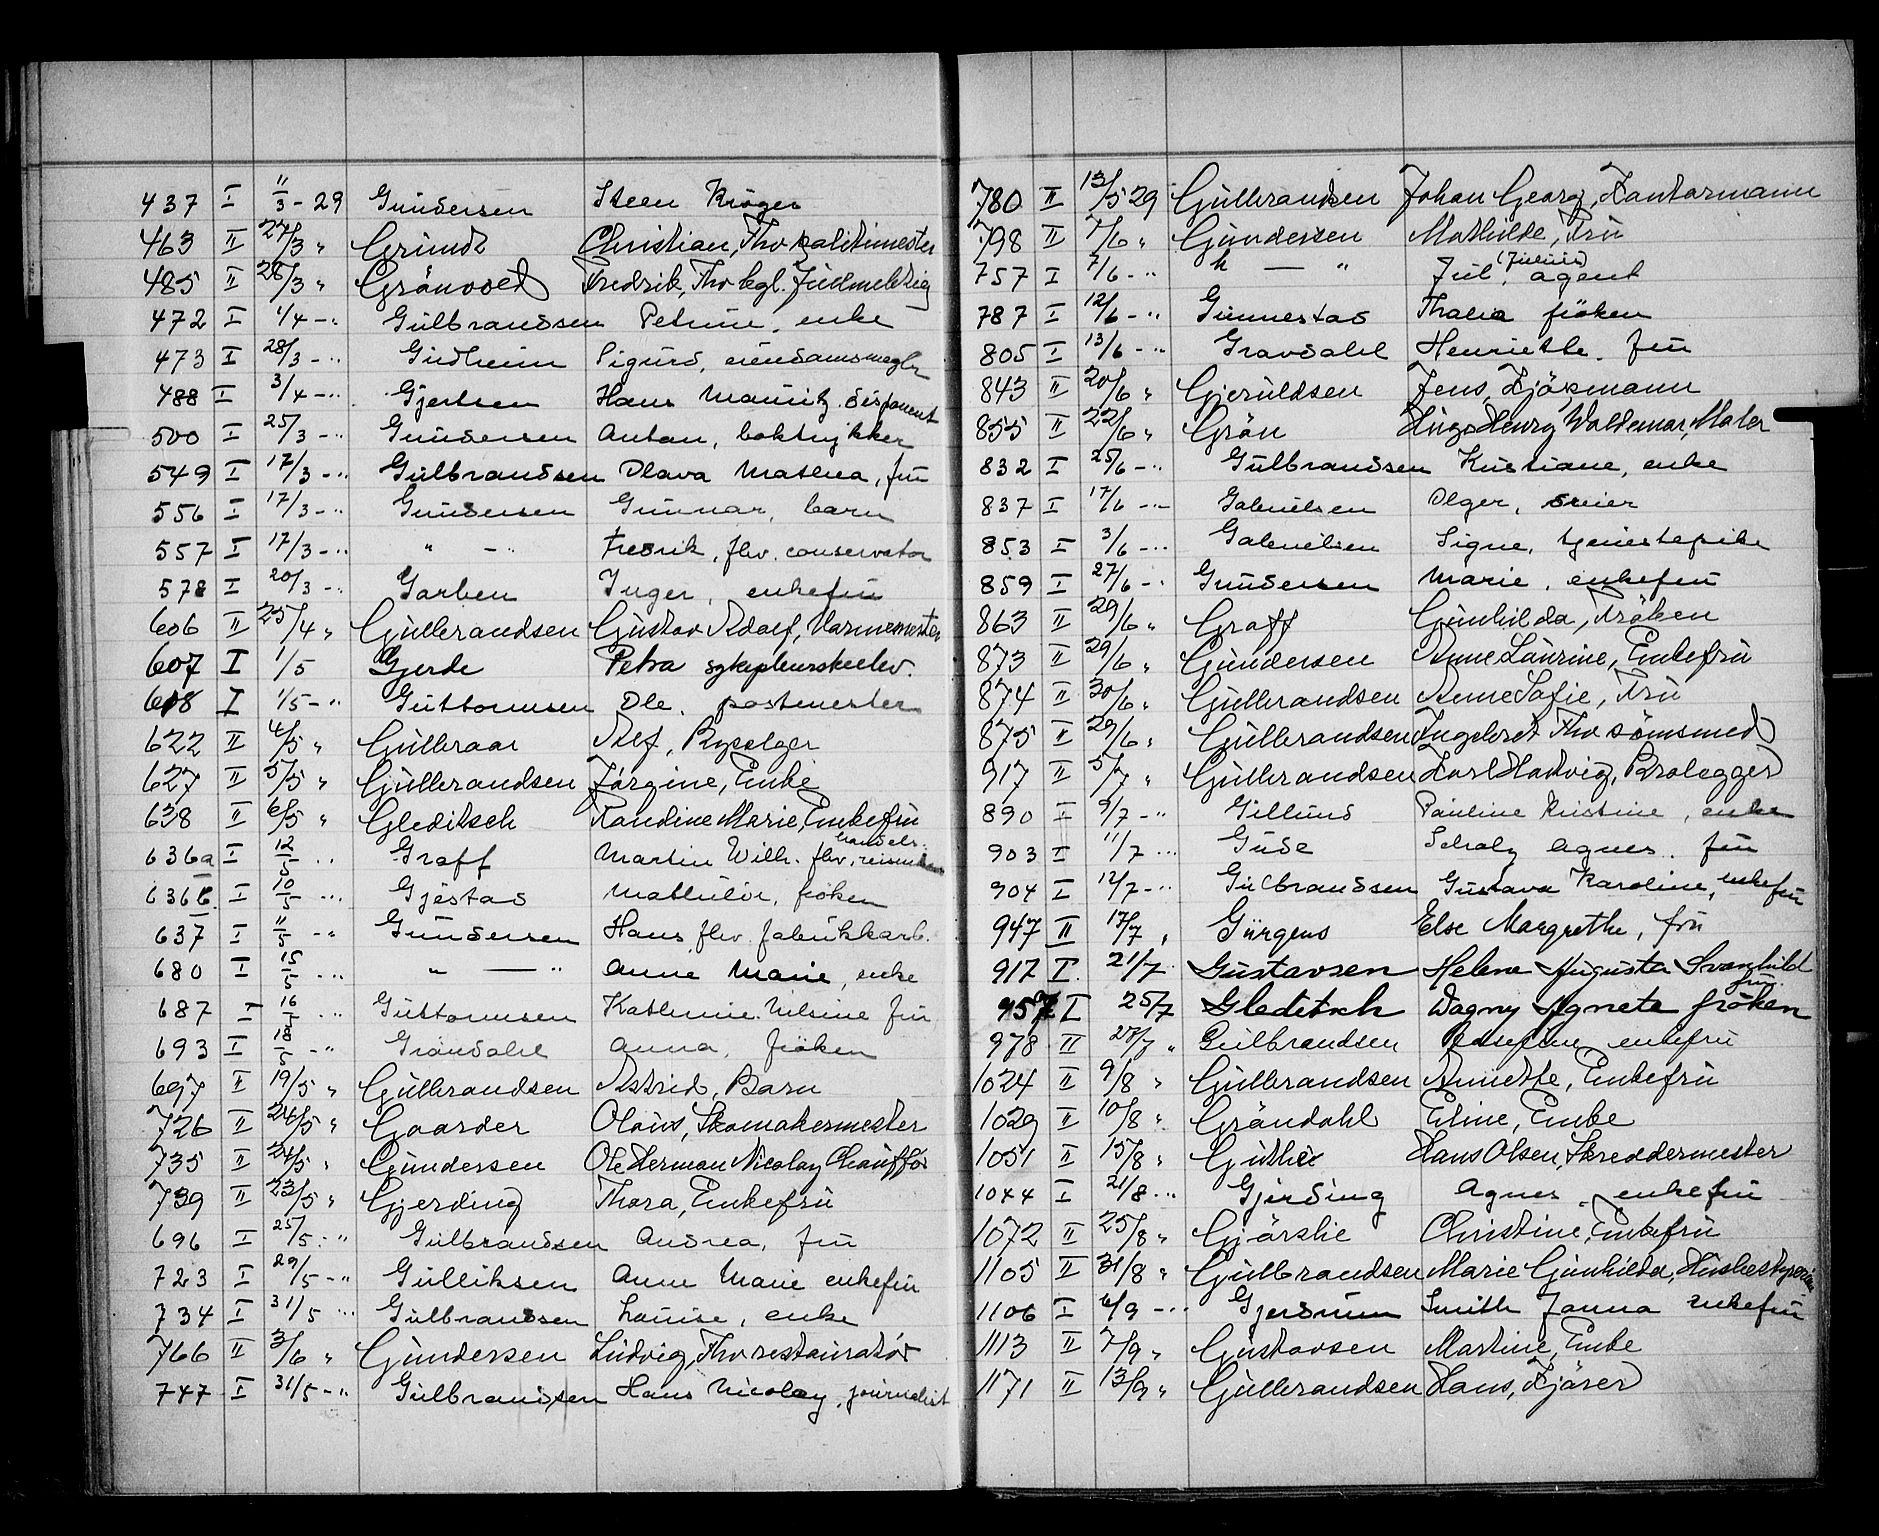 437 I 11/3 - 29 Gundersen Steen Krøger
463 II 27/3 " Grundt Christian, Fhv politimester
485 II 26/3 " Grönvold Fredrik, Fhv kgl. fuldmektig
472 I 1/4 - " Gulbrandsen Petrine, enke
473 I 28/3 - " Gudheim Sigurd, eiendomsmegler
488 I 3/4 - " Gjertsen Hans Mauritz disponent
500 I 25/3 - " Gundersen Anton, boktrykker
549 I 17/3 - " Gulbrandsen Olava Mathea, fru
556 I 17/3 - " Gundersen Gunnar, barn
557 I 17/3 - " " - " Fredrik, fhv. conservator
578 I 20/3 - " Garben Inger, enkefru
606 II 25/4 " Gulbrandsen Gustav Adolf, Varmemester
607 I 1/5 Gjerde Petra sykepleierskeelev.
608 I 1/5 - " Guttormsen Ole, postmester
622 II 4/5 " Gulbraar Alf, Bypelger
627 II 5/5 " Gulbrandsen Jørgine, Enke
638 II 6/5 " Gleditsch Randine Marie, Enkefru
636a I 12/5 " Graff Martin Wilh. fhv. handels-reisende
636b. I 10/5 " Gjestad Mathilde, frøken
637 I 11/5 - " Gundersen Hans, fhv. fabrikkarb.
680 I 15/5 - " " - " Anne Marie, enke
687 I 16/5 " Guttormsen Kathrine Nilsine fru
693 I 18/5 - " Grøndahl Anna, frøken
697 II 19/5 " Gulbrandsen Astrid, Barn
726 II 24/5 " Gaarder Olaus, Skomakermester
735 II 24/5 " Gundersen Ole Herman Nicolay Chauffør
739 II 23/5 " Gjerding Thora, Enkefru
696 I 25/5 - " Gulbrandsen Andrea, fru
723 I 29/5 - " Gulliksen Anne Marie enkefru
734 I 31/5 " Gulbrandsen Louise, enke
766 II 3/6 " Gundersen Ludvig, Fhv restauratør
747 I 31/5 - " Gulbrandsen Hans Nicolay, journalist
780 II 13/5 29 Gulbrandsen Johan Georg, Kontormann
798 II 7/6 " Gundersen Mathilde, Fru
757 I 7/6 - " " - " Jul. (Julius) agent
787 I 12/6 - " Gunnestad Thalia frøken
805 I 13/6 - " Gravdahl Henriette. fru
843 II 20/6 " Gjeruldsen Jens, Kjøpmann
855 II 22/6 " Grön Hugo Henry Waldemar, Maler
832 I 25/6 - " Gulbrandsen Kristiane, enke
837 I 17/6 - " Gabrielsen Olger, dreier
853 I 3/6 - " Gabrielsen Signe, tjenestepike
859 I 27/6 - " Gundersen Marie, enkefru
863 II 29/6 " Graff Gunhilda, Frøken
873 II 29/6 " Gundersen Anne Laurine, Enkefru
874 II 30/6 " Gulbrandsen Anne Sofie, Fru
875 II 29/6 " Gulbrandsen Ingebret Fhv sømsmed
917 II 5/7 " Gulbrandsen Karl Hartvig, Brolegger
890 I 9/7 - " Gillund Pauline Kristine, enke
903 I 11/7 " Gude Agnes. fru
904 I 12/7 - " Gulbrandsen Gustava Karoline, enkefru
947 II 17/7 " Gürgens Else Margrethe, fru
917 I 21/7 Gustavsen Helene Augusta Svanhild fru.
957 I 25/7 Gleditsch Dagny Agnete frøken
978 II 27/7 " Gulbrandsen Josefine enkefru
1024 II 9/8 " Gulbrandsen Annette, Enkefru
1029 II 10/8 " Gröndahl Eline, Enke
1051 II 15/8 " Guthie Hans Olsen, Skreddermester
1044 I 21/8 " Gjerding Agnes, enkefru
1072 II 25/8 " Gjörslie Christine, Enkefru
1105 II 31/8 " Gulbrandsen Marie Gunhilda, Husbestyrerinne
1106 I 6/9 - " Gjerdrum Smith Janna enkefru
1113 II 7/9 " Gustavsen Martine, Enke
1171 II 13/9 " Gulbrandsen Hans, Kjører